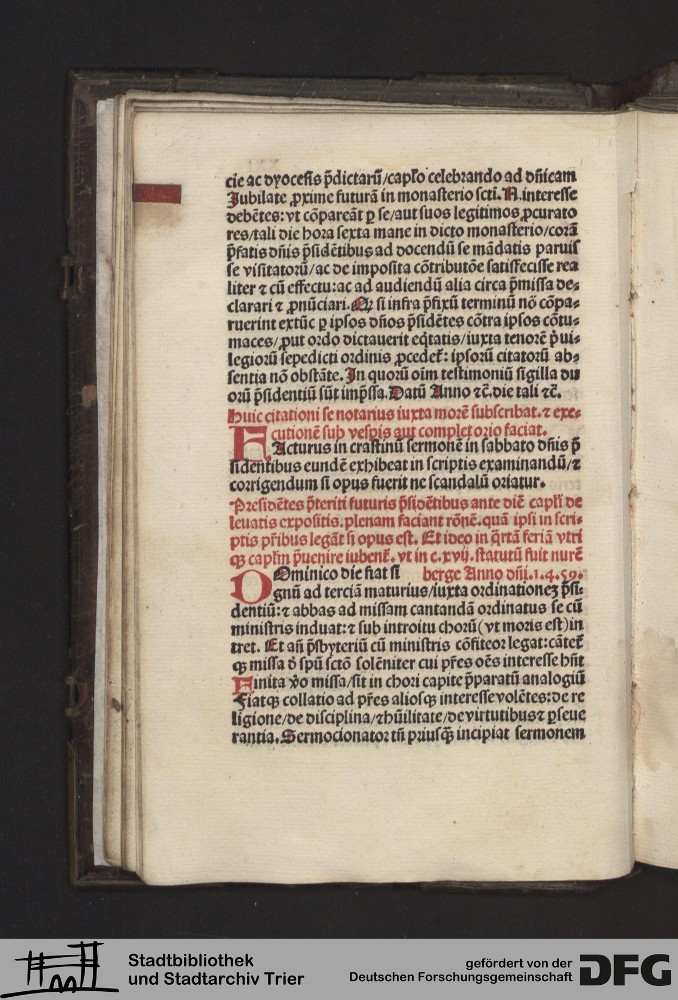 cie ac dyocesis p̄dictarū/capl̄o celebrando ad dn̄icam
Jubilate ꝓxime futurā in monasterio scti. N. interesse
debētes: vt cōpareāt ꝑ se/aut suos legitimos ꝓcurato
res/tali die hora sexta mane in dicto monasterio/corā
p̄fatis dn̄is p̄sidētibus ad docendū se mādatis paruis
se visitatorū/ac de imposita cōtributōe satisfecisse rea
liter ⁊ cū effectu: ac ad audiendū alia circa p̄missa de⸗
clarari ⁊ ꝓnūciari. Qꝛ si infra p̄fixū terminū nō cōpa⸗
ruerint extūc ꝑ ipsos dn̄os p̄sidētes cōtra ipsos cōtu⸗
maces/ꝓut ordo dictauerit eq̄tatis/iuxta tenorē p̄ui⸗
legiorū sepedicti ordinis ꝓcedet̄: ipsorū citatorū ab⸗
sentia nō obstāte. In quorū oīm testimoniū sigilla du
orū p̄sidentiū sūt imp̄ssa. Datū Anno ⁊c̄. die tali ⁊c̄.
Huic citationi se notarius iuxta morē subscribat. ⁊ exe⸗
cutionē sub vesp̄is aut completorio faciat.
FActurus in crastinū sermonē in sabbato dn̄is p̄
sidentibus eundē exhibeat in scriptis examinandū/⁊
corrigendum si opus fuerit ne scandalū oriatur.
Presidētes p̄teriti futuris p̄sidētibus ante diē capl̄i de
leuatis expositis. plenam faciant rōnē. quā ipsi in scri⸗
ptis pr̄ibus legāt si opus est. Et ideo in q̄rta feriā vtri
qꝫ capl̄m p̄uenire iubent̄. vt in c. xvij. statutū fuit nurē
DOminico die fiat si berge Anno dn̄i. 1.4.59.
gnū ad terciā maturius/iuxta ordinationeꝫ p̄si⸗
dentiū: ⁊ abbas ad missam cantandā ordinatus se cū
ministris induat: ⁊ sub introitu chorū (vt moris est) in
tret. Et an̄ p̄sbyteriū cū ministris cōfiteor legat: cātet̄
qꝫ missa d̄ spū sctō solēniter cui pr̄es oēs interesse hn̄t
Finita v̄o missa/sit in chori capite p̄paratū analogiū
Fiatqꝫ collatio ad pr̄es aliosqꝫ interesse volētes: de re
ligione/de disciplina/⁊hūilitate/de virtutibus ⁊ ꝑseue
rantia. Sermocionator tn̄ priusq̄ꝫ incipiat sermonem
Stadtbibliothek
und Stadtarchiv Trier
gefördert von der
Deutschen Forschungsgemeinschaft
DFG